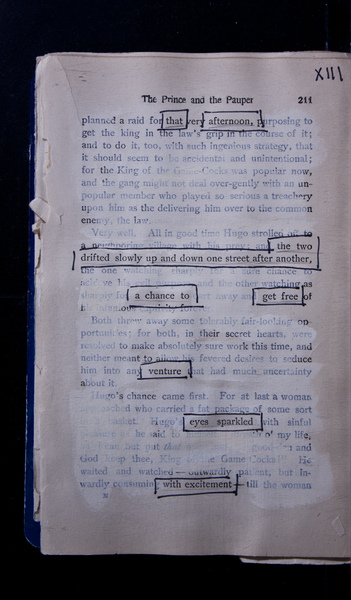 XIII
The Prince and the Pauper 211
planned a raid for that very afternoon, purposing to
get the king in the law's grip in the course of it;
and to do it, too, with such ingenious strategy, that
it should seem to be accidental and unintentional;
for the King of the Game-Cocks was popular now,
and the gang might not deal over-gently with an un-
popular member who played so serious a treachery
upon him as the delivering him over to the common
enemy, the law.
Very well. All in good time Hugo strolled off to
a neighboring village with his prey; and the two
drifted slowly up and down one street after another,
the one watching sharply for a sure chance to
achieve his evil purpose, and the other watching as
sharply for a chance to away and get free of
his infamous captivity forever.
Both threw away some tolerably fair-looking op-
portunities; for both, in their secret hearts, were
resolved to make absolutely sure work this time, and
neither meant to allow his fevered desires to seduce
him into any venture that had much uncertainty
about it.
Hugo's chance came first. For at last a woman
approached who carried a fat package of some sort
in a basket. Hugo's eyes sparkled with sinful
pleasure as he said to himself, o' my life,
an I can but put that upon and
God keep thee, King of the Game-Cocks!" He
waited and watched—outwardly patient, but in-
wardly consuming with excitement—till the woman